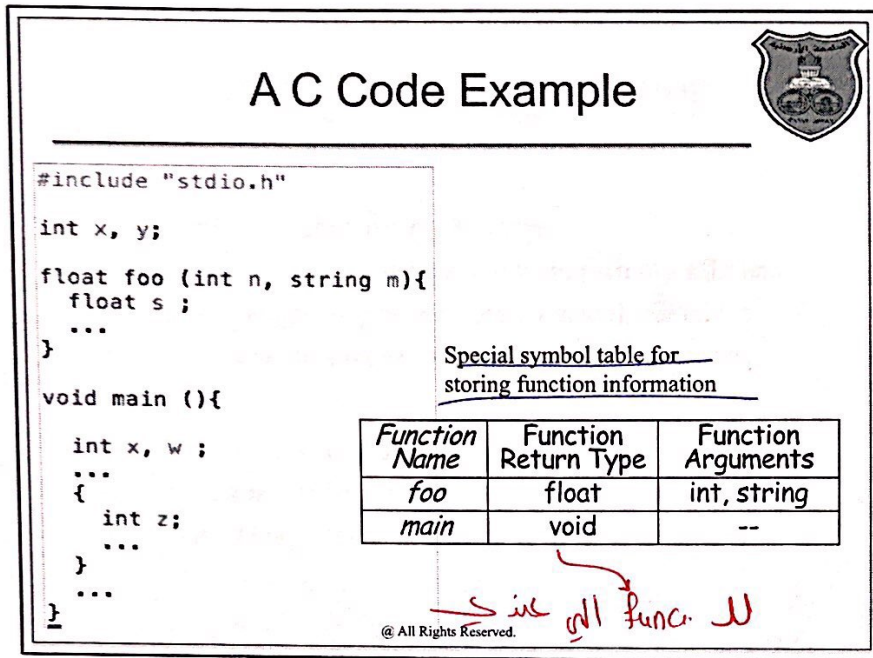 A C Code Example
#include "stdio.h"
int x, y;
float foo (int n, string m){
float s ;
...
}
void main (){
int x, w ;
...
{
int z;
...
}
...
}
Special symbol table for
storing function information
Function Name | Function Return Type | Function Arguments
foo | float | int, string
main | void | --
لل func. الي عندي
@ All Rights Reserved.